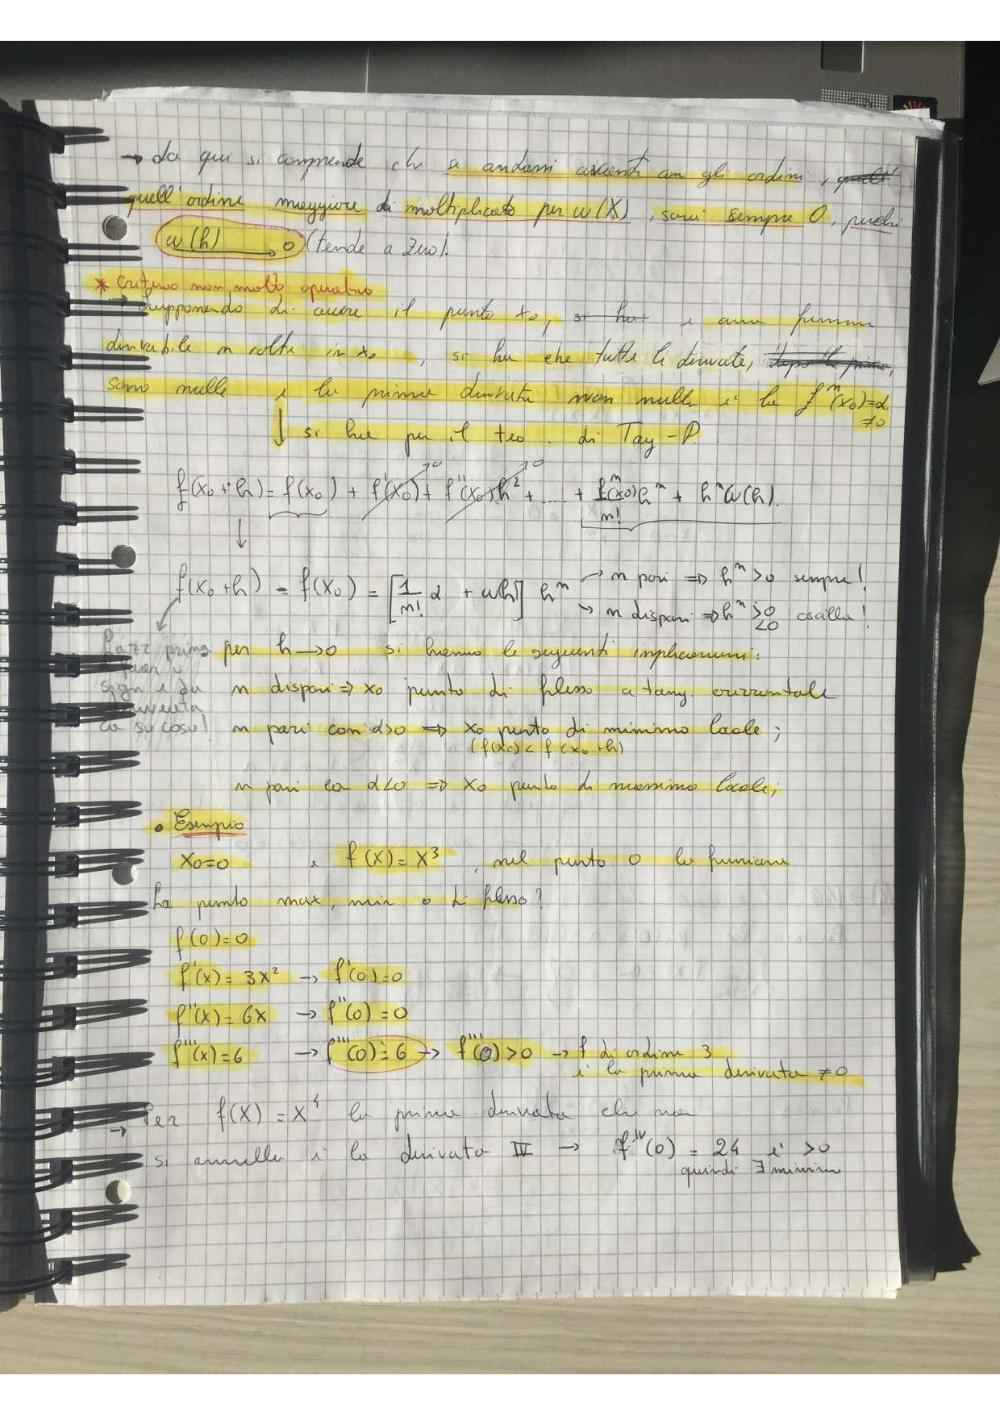 → da qui si comprende che se andiamo avanti con gli ordini,
quell'ordine maggiore di moltiplicato per ω(X), sarà sempre 0, perché
ω(h) → 0 (tende a zero).
* Criterio non molto operativo
→ Supponendo di avere il punto x₀, e una funzione
derivabile n volte in x₀, si ha che tutte le derivate,
sono nulle e la prima derivata non nulla è la fⁿ(x₀)=α
≠0
↓ si ha per il teo. di Tay-P
f(x₀+h) = f(x₀) + f'(x₀) + f''(x₀)h² + .... + fⁿ(x₀)hⁿ/n! + hⁿω(h).
f(x₀+h) - f(x₀) = [1/n! α + ω(h)] hⁿ → n pari ⇒ hⁿ>0 sempre!
→ n dispari ⇒ hⁿ >0 <0 oscilla!
per h→0 si hanno le seguenti implicazioni:
n dispari ⇒ x₀ punto di flesso a tang. orizzontale
n pari con α>0 ⇒ x₀ punto di minimo locale;
(f(x₀) < f(x₀+h)
n pari con α<0 ⇒ x₀ punto di massimo locale;
• Esempio
x₀=0 e f(x)=x³, nel punto 0 la funzione
ha punto max, min o di flesso?
f(0)=0
f'(x)=3x² → f'(0)=0
f''(x)=6x → f''(0)=0
f'''(x)=6 → f'''(0)=6 → f'''(0)>0 → f di ordine 3
è la prima derivata ≠0
→ Per f(x)=x⁴ la prima derivata che non
si annulla è la derivata IV → fᴵⱽ(0) = 24 è >0
quindi ∃ minimo